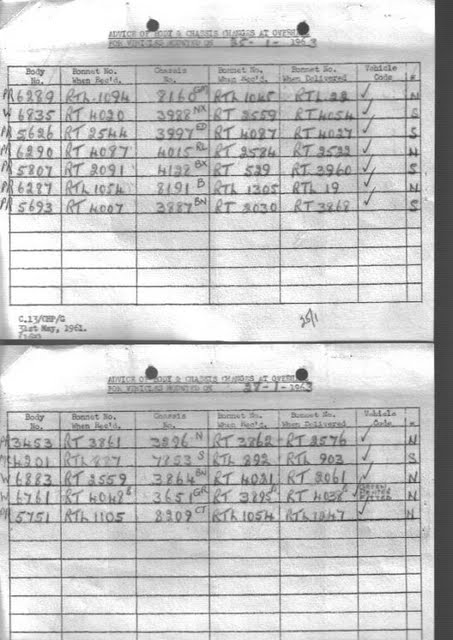 ADVICE OF BODY & CHASSIS CHANGES AT OVERH
FOR VEHICLES 25 - 1 - 1963
Body No. Bonnet No. When Rec'd. Chassis No. Bonnet No. When Rec'd. Bonnet No. When Delivered Vehicle Code
PR 6289 RTL 1094 8160 GM RTL 1045 RTL 22 ✓ N
W 6835 RT 4020 3988 NX RT 2559 RT 4054 ✓ S
PR 5626 RT 2544 3997 ED RT 4087 RT 4027 ✓ S
PR 6290 RT 4087 4015 RL RT 2584 RT 2522 ✓ N
PR 5807 RT 2091 4128 BX RT 529 RT 3960 ✓ S
PR 6287 RTL 1054 8191 B RTL 1305 RTL 19 ✓ N
PR 5693 RT 4007 3887 BN RT 2030 RT 3868 ✓ S
C.13/CHP/G
31st May, 1961.
25/1
ADVICE OF BODY & CHASSIS CHANGES AT OVERH
FOR VEHICLES 28 - 1 - 1963
Body No. Bonnet No. When Rec'd. Chassis No. Bonnet No. When Rec'd. Bonnet No. When Delivered Vehicle Code
PR 3453 RT 3861 3296 N RT 3862 RT 2576 ✓ N
4201 RTL 887 7853 S RTL 892 RTL 903 ✓ S
W 6883 RT 2559 3864 BN RT 4021 RT 2061 ✓ N
W 6761 RT 4048 3651 GR RT 3895 RT 4038 ✓ N
PR 5751 RTL 1105 8209 CT RTL 1054 RTL 1247 ✓ N